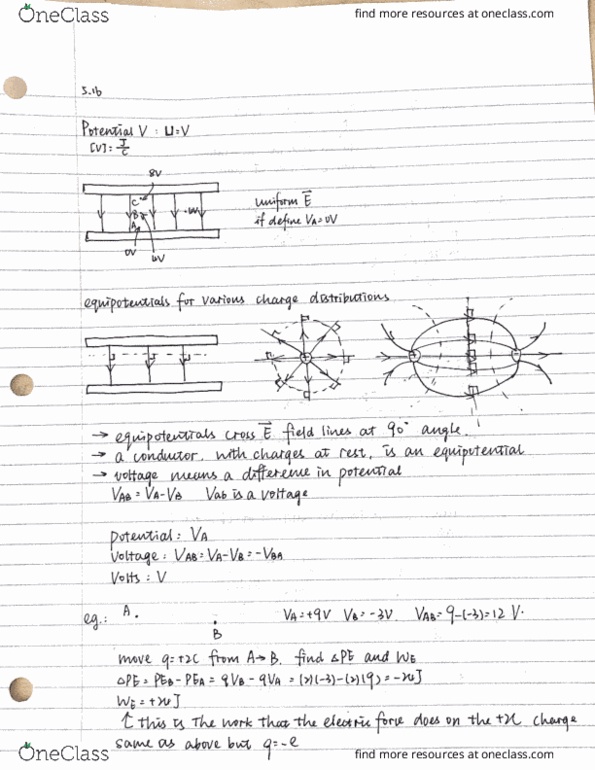 OneClass
find more resources at oneclass.com
3.1b
Potential V : U=V
[V]: J/C
8V
C
B
A
0V
uniform E⃗
if define VA=0V
equipotentials for various charge distributions
→ equipotentials cross E⃗ field lines at 90° angle.
→ a conductor, with charges at rest, is an equipotential
→ voltage means a difference in potential
VAB = VA-VB Vab is a voltage
potential : VA
voltage : VAB=VA-VB=-VBA
Volts : V
eg.: A. B VA=+9V VB=-3V VAB=9-(-3)=12 V.
move q=+2C from A→B. find △PE and WE
△PE = PEB - PEA = qVB - qVA = (2)(-3)-(2)(9) = J
WE = + J
↑ this is the work that the electric force does on the charge
same as above but q=-e
OneClass
find more resources at oneclass.com